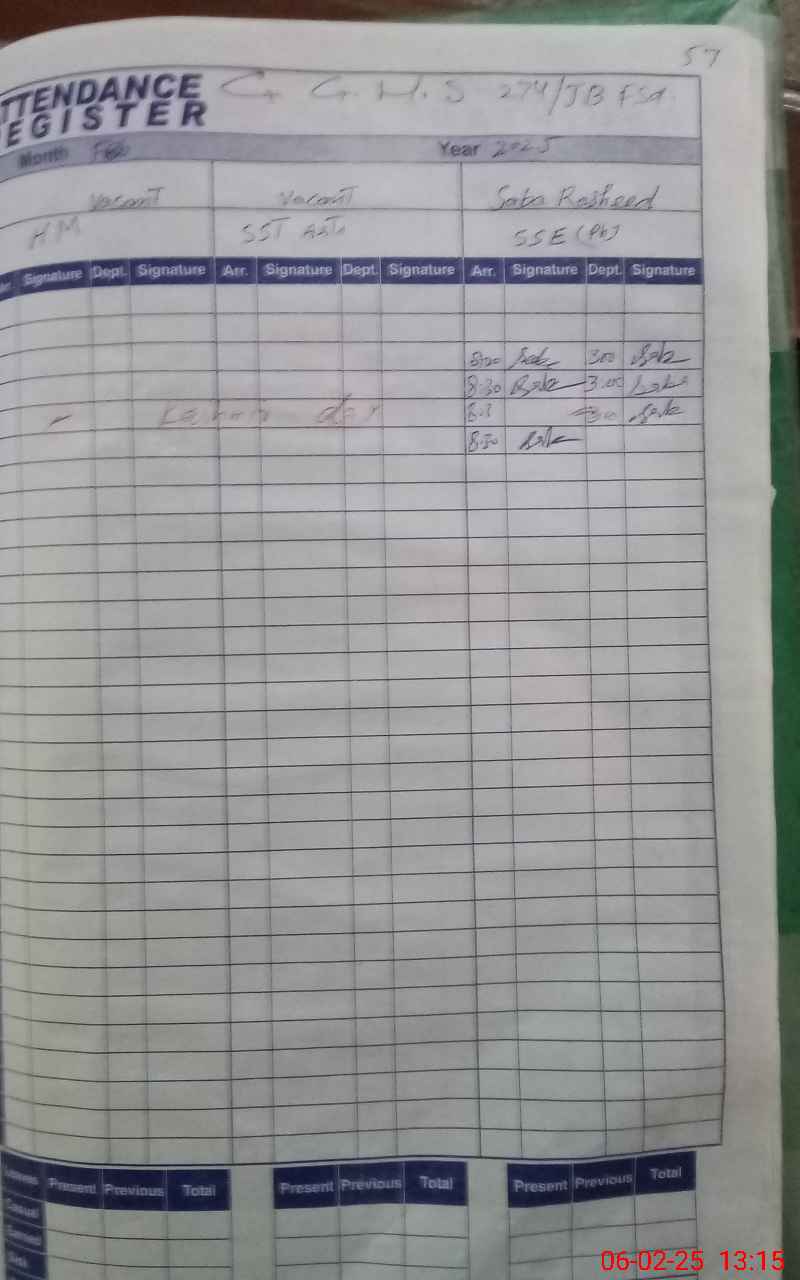 57
TTENDANCE
EGISTER
G. G. H. S 274/JB FSd.
Month Feb Year 2025
Vacant Vacant Saba Rasheed
HM SST Arts SSE (Ph)
Arr. Signature Dept. Signature Arr. Signature Dept. Signature Arr. Signature Dept. Signature
3.00
8.30 3.00
day 8.3
8.30
Present Previous Total Present Previous Total Present Previous Total
Casual
Earned
Sick
06-02-25 13:15